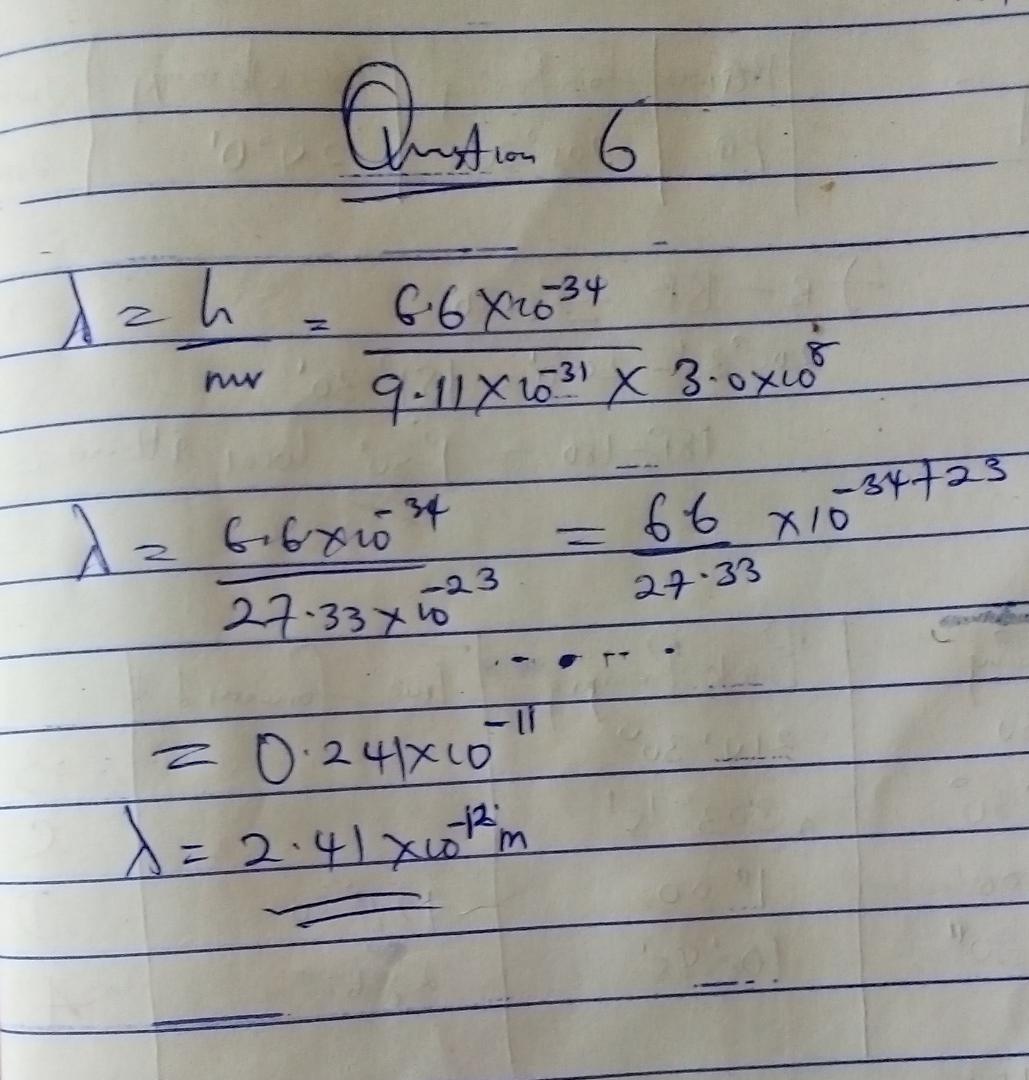 Question 6
λ = h/mv = 6.6×10^-34 / 9.11×10^-31 × 3.0×10^8
λ = 6.6×10^-34 / 27.33×10^-23 = 66/27.33 ×10^-34+23
= 0.241×10^-11
λ = 2.41×10^-12 m